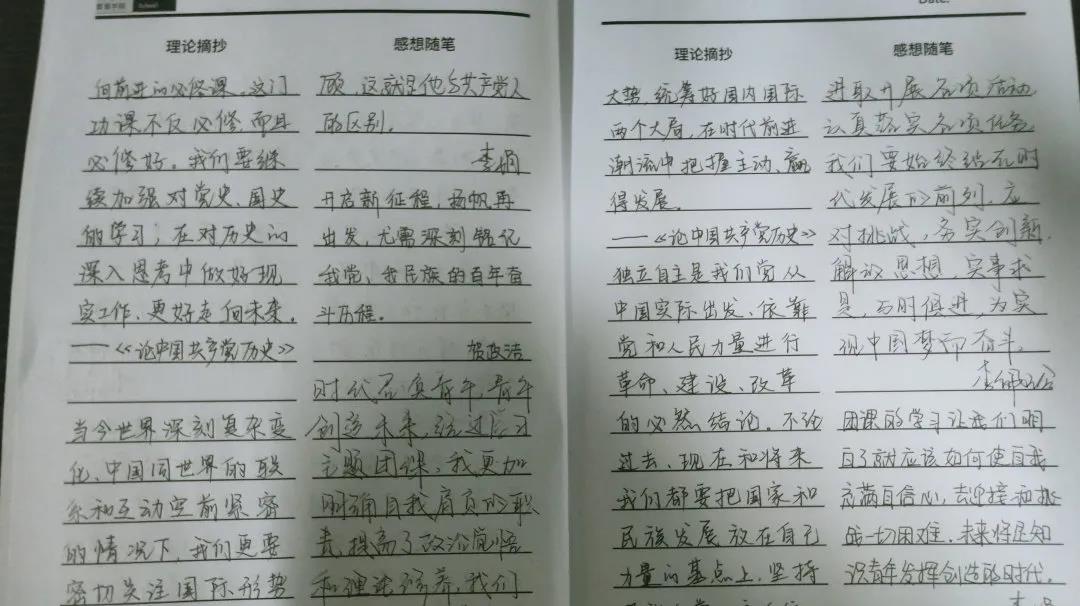 School
理论摘抄
向前进的必修课。这门
功课不仅必修,而且
必修好。我们要继
续加强对党史、国史
的学习,在对历史的
深入思考中做好现
实工作、更好走向未来。
——《论中国共产党历史》
当今世界深刻复杂变
化,中国同世界的联
系和互动空前紧密
的情况下,我们更要
密切关注国际形势
感想随笔
顾,这就是他与共产党人
的区别。
李娟
开启新征程,扬帆再
出发,尤需深刻铭记
我党、我民族的百年奋
斗历程。
贺政洁
时代召唤青年,青年
创造未来,统过学习
主题团课,我更加
明确自我肩负的职
责,提高了政治觉悟
和理论修养,我们
Date:
理论摘抄
大势,统筹好国内国际
两个大局,在时代前进
潮流中把握主动、赢
得发展。
——《论中国共产党历史》
独立自主是我们党从
中国实际出发、依靠
党和人民力量进行
革命、建设、改革
的必然结论。不论
过去、现在和将来
我们都要把国家和
民族发展放在自己
力量的基点上,坚持
感想随笔
进取开展各项活动
认真落实各项任务
我们要始终站在时
代发展的前列,应
对挑战,务实创新,
解放思想,实事求
是,与时俱进,为实
现中国梦而奋斗。
团课的学习让我们明
白了就应该如何使自我
充满自信心,去迎接和挑
战一切困难。未来将是知
识青年发挥创造的时代。